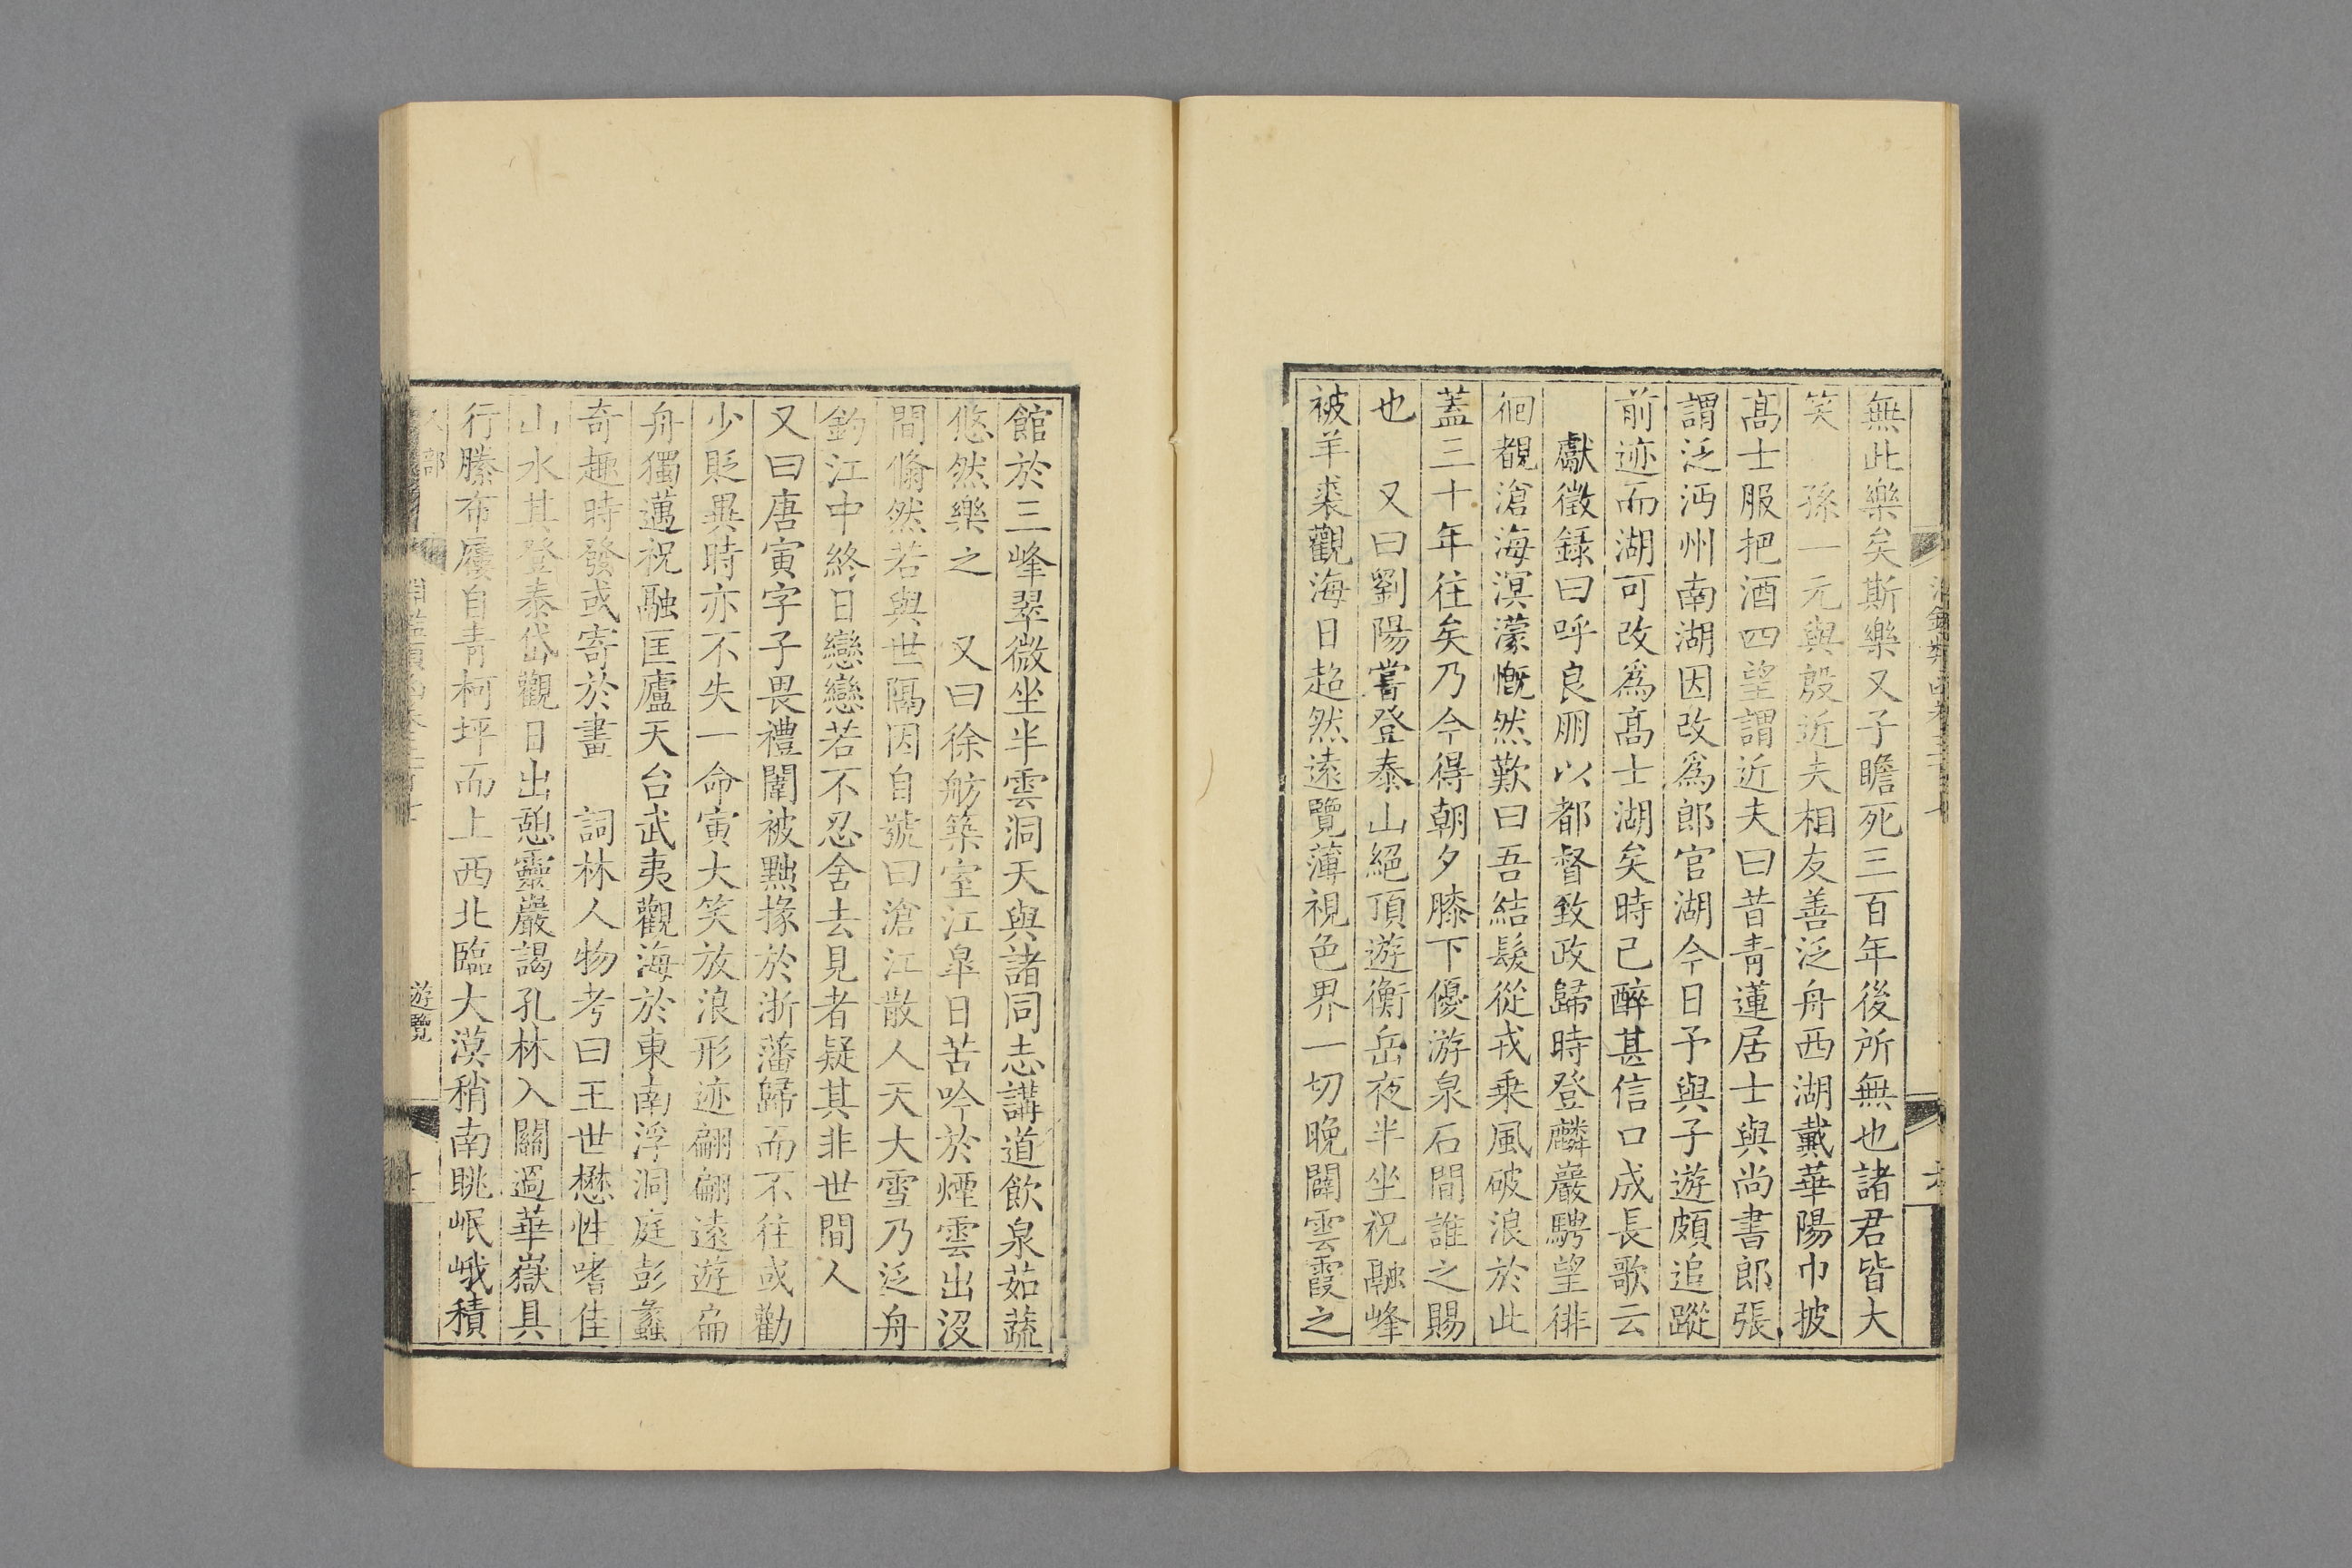 無此樂矣斯樂又子瞻死三百年後所無也諸君皆大
笑　孫一元與殷近夫相友善泛舟西湖戴華陽巾披
髙士服把酒四望謂近夫曰昔青蓮居士與尚書郎張
謂泛沔州南湖因改爲郎官湖今日予與子遊頗追蹤
前迹而湖可改爲髙士湖矣時已醉甚信口成長歌云
獻徵錄曰呼良朋以都督致政歸時登麟巖騁望徘
徊覩滄海溟濛慨然歎曰吾結髮從戎乗風破浪於此
蓋三十年往矣乃今得朝夕膝下優游泉石間誰之賜
也　又曰劉陽嘗登泰山絕頂遊衡岳夜半坐祝融峰
被羊裘觀海日超然遠覽薄視色界一切晚闢雲霞之
館於三峰翠微坐半雲洞天與諸同志講道飲泉茹蔬
悠然樂之　又曰徐舫築室江臯日苦吟於煙雲出沒
間翛然若與世隔因自號曰滄江散人天大雪乃泛舟
釣江中終日戀戀若不忍舍去見者疑其非世間人
又曰唐寅字子畏禮闈被黜掾於浙藩歸而不往或勸
少貶異時亦不失一命寅大笑放浪形迹翩翩遠遊扁
舟獨邁祝融匡廬天台武夷觀海於東南浮洞庭彭蠡
奇趣時發或寄於畫　詞林人物考曰王世懋性嗜佳
山水其登泰岱觀日出憩靈巖謁孔林入關過華嶽具
行縢布屨自青柯坪而上西北臨大漠稍南眺岷峨積
人部
遊覽